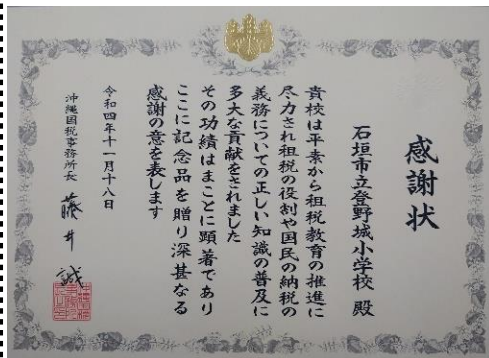 感謝状
石垣市立登野城小学校 殿
貴校は平素から租税教育の推進に
尽力され租税の役割や国民の納税の
義務についての正しい知識の普及に
多大な貢献をされました
その功績はまことに顕著であり
ここに記念品を贈り深甚なる
感謝の意を表します
令和四年十一月十八日
沖縄国税事務所長 藤井 誠